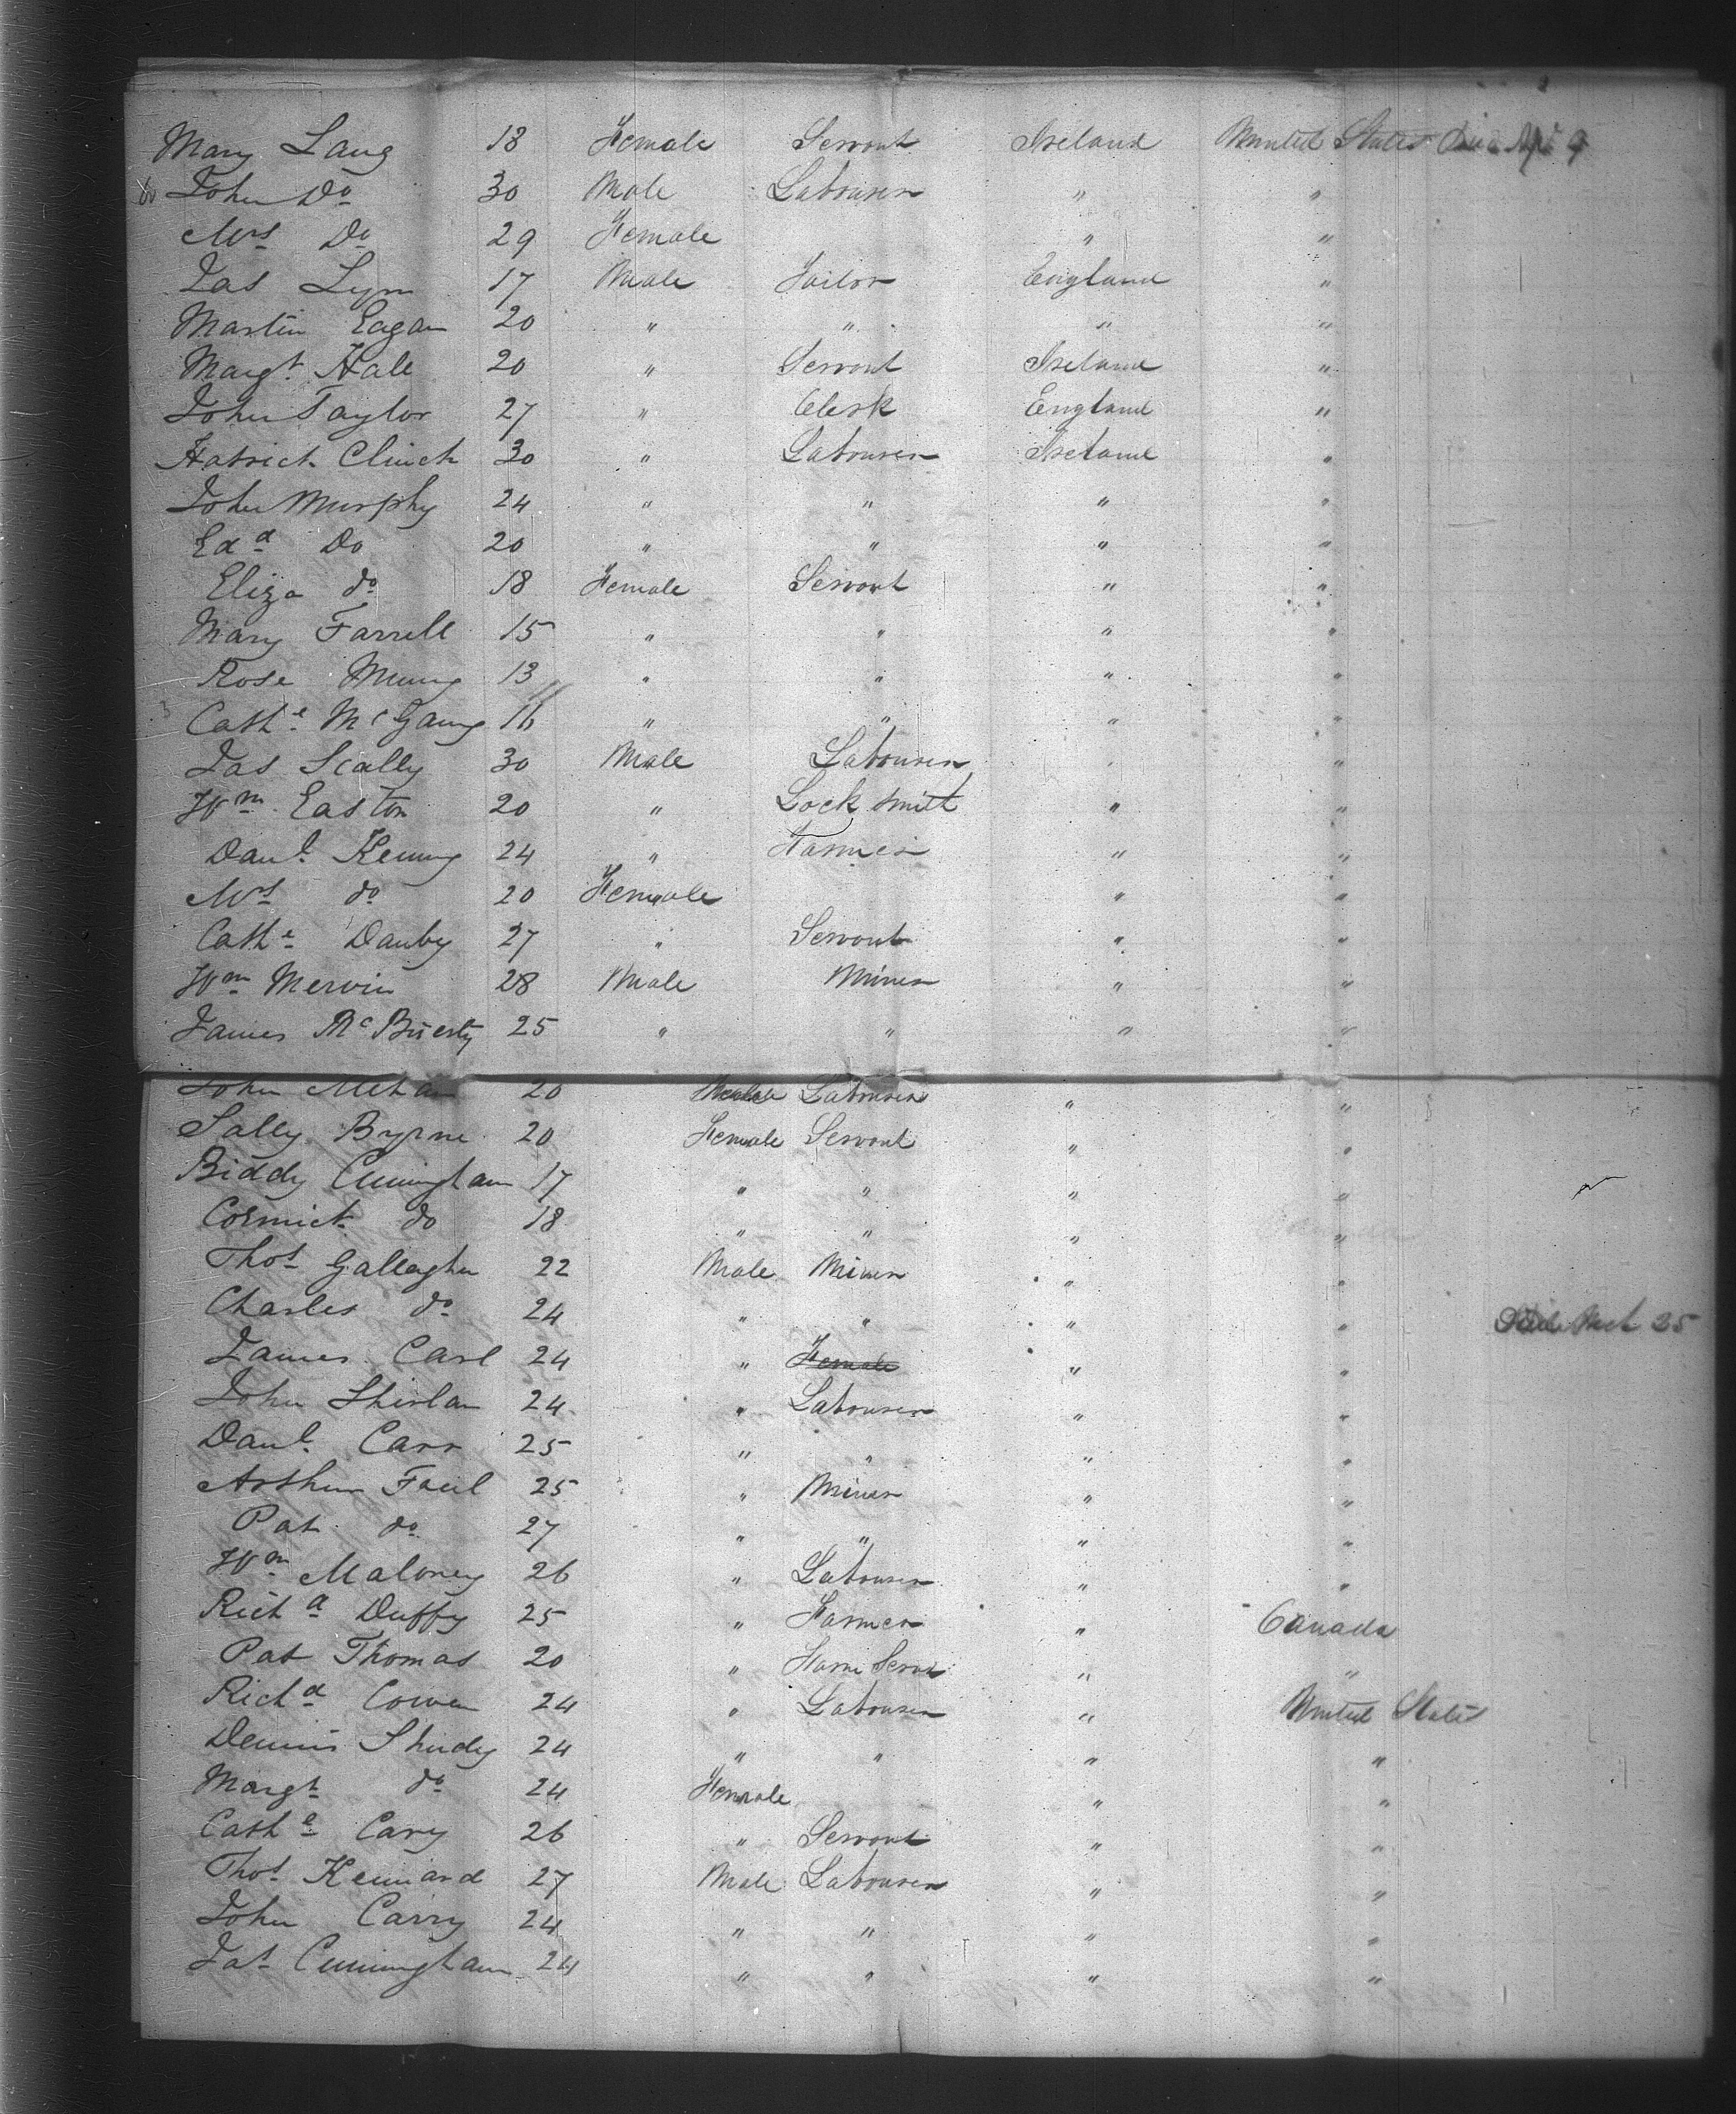 Mary Lang 18 Female Servant Ireland United States Died Apl 9
John Do 30 Male Labourer " "
Mrs Do 29 Female " "
Jas Lynn 17 Male Tailor England "
Martin Eagan 20 " " " "
Margt. Hale 20 " Servant Ireland "
John Taylor 27 " Clerk England "
Patrick Clinch 30 " Labourer Ireland "
John Murphy 24 " " " "
Edd Do 20 " " " "
Eliza do 18 Female Servant " "
Mary Farrell 15 " " " "
Rose 13 " " " "
Cathe 16 " " " "
Jas Scally 30 Male Labourer "
Wm Easton 20 " Lock smith " "
Danl. Kenny 24 " Farmer " "
Mrs do 20 Female " "
Cathe Danby 27 " Servant " "
Wm Mervin 28 Male Miner " "
James McBriesty 25 " " " "
John Mehan 20 Male Labourer " "
Sally Byrne 20 Female Servant " "
Biddy Cuningham 17 " " " "
Cormick do 18 " " " "
Thos Gallagher 22 Male Miner " "
Charles do 24 " " " " 25
James Carl 24 " Female " "
John Shirlan 24 " Labourer " "
Danl. Carr 25 " " " "
Arthur 25 " Miner " "
Pat do 27 " " " "
Wm Maloney 26 " Labourer " "
Richd Duffy 25 " Farmer " Canada
Pat Thomas 20 " Farm Servt " "
Richd Cowen 24 " Labourer " United States
Dennis 24 " " " "
Margt do 24 Female " "
Cathe Cary 26 " Servant " "
Thos Kennard 27 Male Labourer " "
John Carry 24 " " " "
Jas Cunningham 24 " " " "